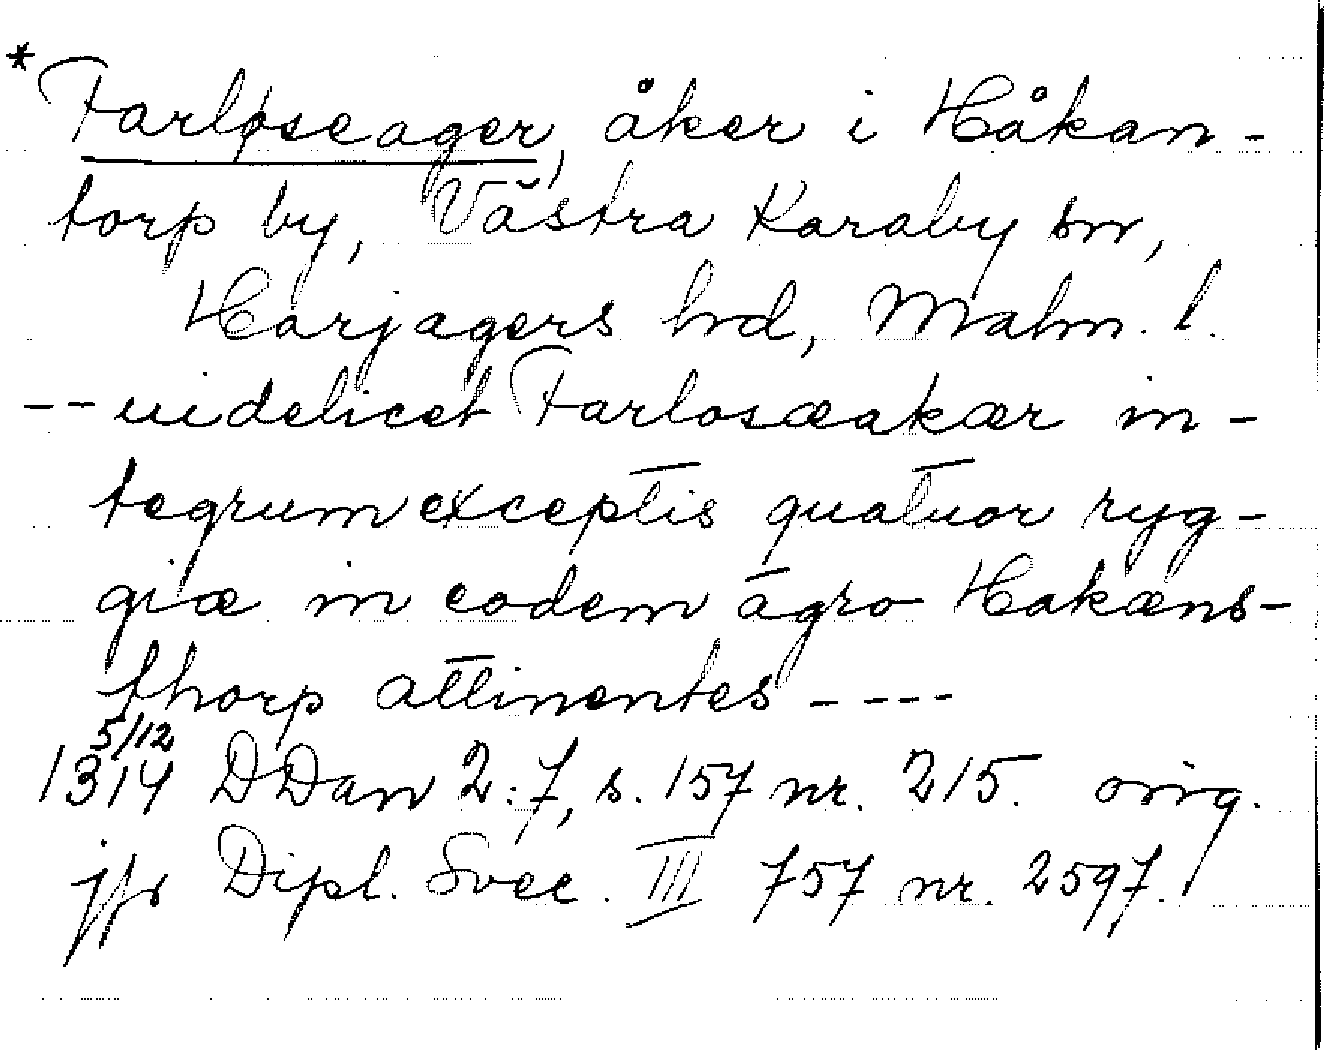 *Farløseager, åker i Håkan-
torp by, Västra Karaby sn,
Harjagers hrd, Malm. l.
-- uidelicet Farlosæakær in-
tegrum exceptis quatuor ryg-
giæ in eodem agro Hakæns-
thorp attinentes ----
1314 5/12 DDan 2:7, s. 157 nr. 215. orig.
jfr Dipl. Svec. III 757 nr. 2597.